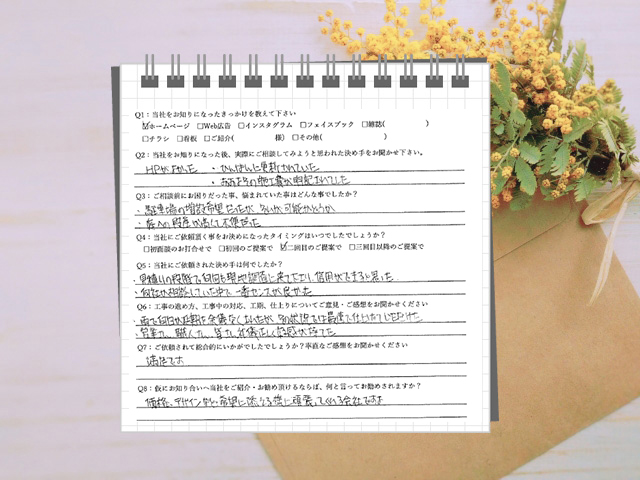 Q1：当社をお知りになったきっかけを教えて下さい
☑ホームページ □Web広告 □インスタグラム □フェイスブック □雑誌( )
□チラシ □看板 □ご紹介( 様) □その他( )
Q2：当社をお知りになった後、実際にご相談してみようと思われた決め手をお聞かせ下さい。
HPが良かった ・ひんぱんに更新されていた
・おおよその施工費が明記されていた
Q3：ご相談前にお困りだった事、悩まれていた事はどんな事でしたか？
・駐車場の増設希望だったが、可能かどうか
・段差が高くて不便だった
Q4：当社にご依頼頂く事をお決めになったタイミングはいつでしたでしょうか？
□初面談のお打合せで □初回のご提案で ☑二回目のご提案で □三回目以降のご提案で
Q5：当社にご依頼された決め手は何でしたか？
・見積りの段階で何回も現地確認に来て下さり、信用ができると思った
・何社か相談していた中で一番センスが良かった
Q6：工事の進め方、工事中の対応、工期、仕上りについてご意見・ご感想をお聞かせください
・雨で何日か延期を余儀なくされたが、
・営業さん、職人さん、皆さん礼儀正しく好感が持てた
Q7：ご依頼されて総合的にいかがでしたでしょうか？率直なご感想をお聞かせください
満足です
Q8：仮にお知り合いへ当社をご紹介・お勧め頂けるならば、何と言ってお勧めされますか？
価格、デザインなど、希望に添える様に頑張ってくれる会社ですよ